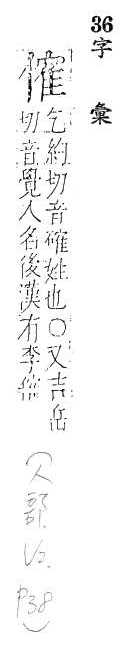 36字彙
傕
乞約切音確姓也○又吉岳
切音覺人名後漢有李傕
(人部. P38)